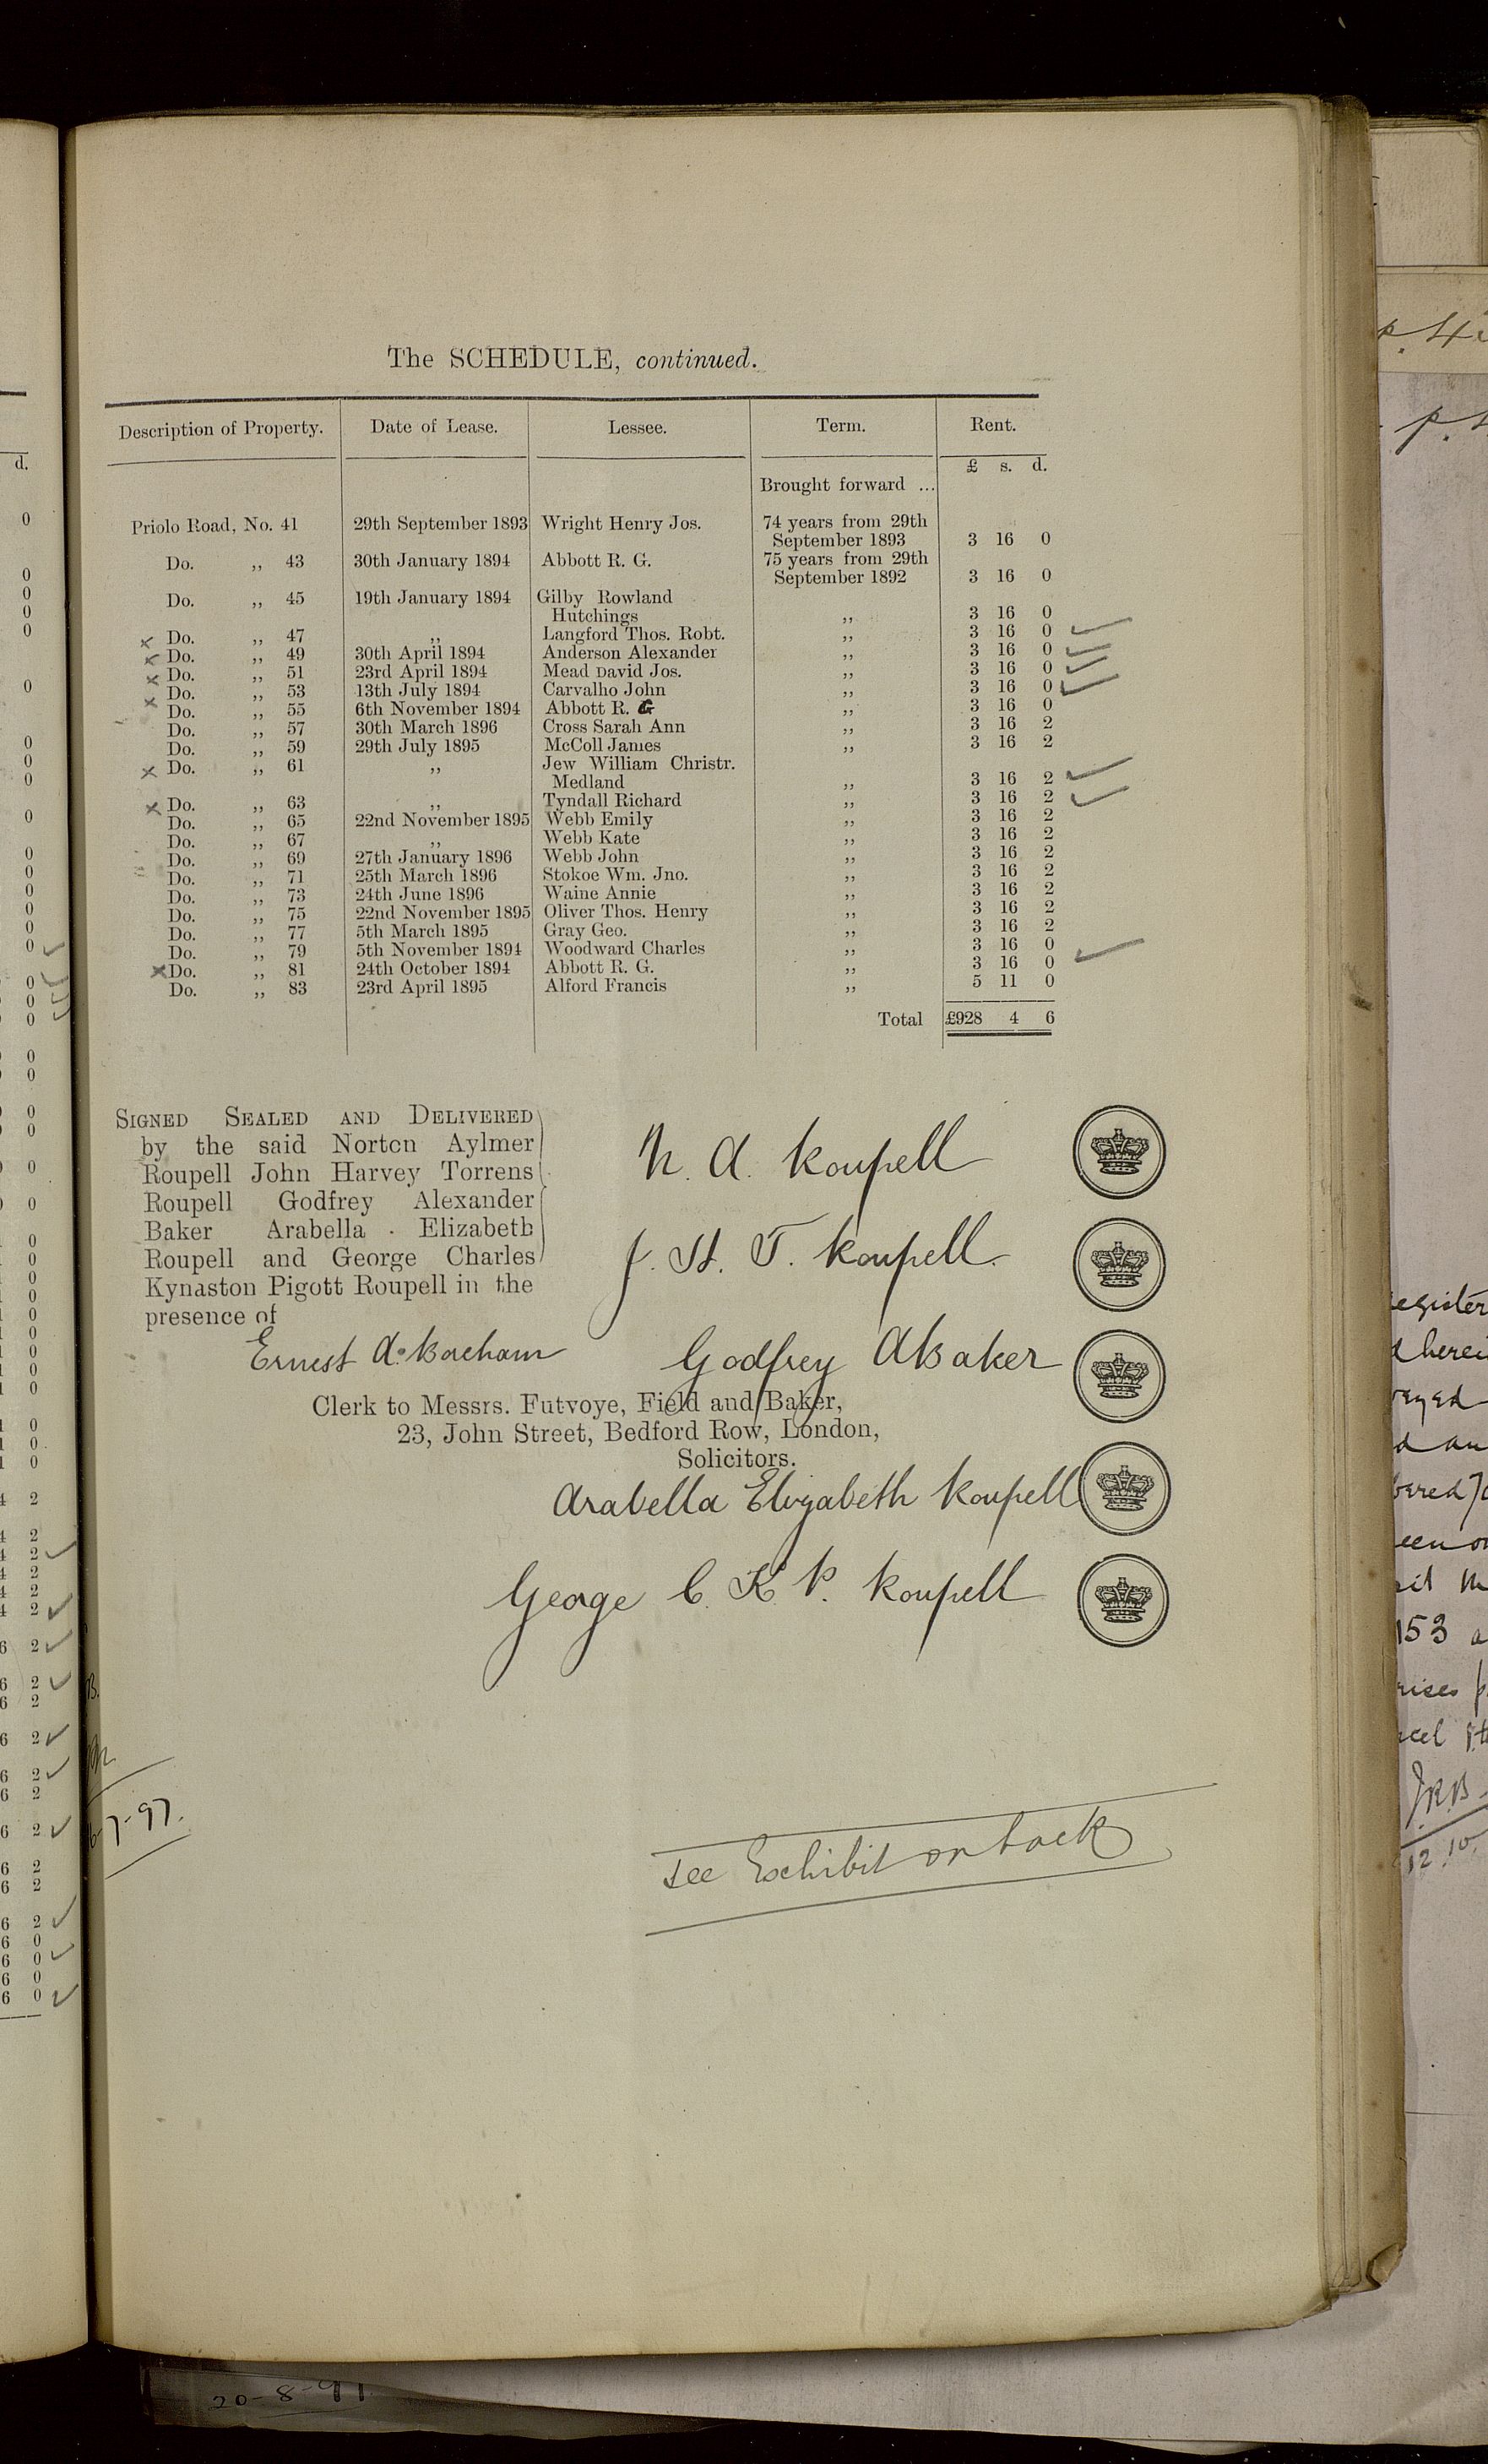 The SCHEDULE, continued.
Description of Property. Date of Lease. Lessee. Term. Rent.
£ s. d.
Brought forward ...
Priolo Road, No. 41 29th September 1893 Wright Henry Jos. 74 years from 29th
September 1893 3 16 0
Do. ,, 43 30th January 1894 Abbott R. G. 75 years from 29th
September 1892 3 16 0
Do. ,, 45 19th January 1894 Gilby Rowland
Hutchings ,, 3 16 0
x Do. ,, 47 ,, Langford Thos. Robt. ,, 3 16 0 ✓
x Do. ,, 49 30th April 1894 Anderson Alexander ,, 3 16 0 ✓
x Do. ,, 51 23rd April 1894 Mead David Jos. ,, 3 16 0 ✓
x Do. ,, 53 13th July 1894 Carvalho John ,, 3 16 0 ✓
Do. ,, 55 6th November 1894 Abbott R. G ,, 3 16 0
Do. ,, 57 30th March 1896 Cross Sarah Ann ,, 3 16 2
Do. ,, 59 29th July 1895 McColl James ,, 3 16 2
x Do. ,, 61 ,, Jew William Christr.
Medland ,, 3 16 2 ✓
x Do. ,, 63 ,, Tyndall Richard ,, 3 16 2 ✓
Do. ,, 65 22nd November 1895 Webb Emily ,, 3 16 2
Do. ,, 67 ,, Webb Kate ,, 3 16 2
Do. ,, 69 27th January 1896 Webb John ,, 3 16 2
Do. ,, 71 25th March 1896 Stokoe Wm. Jno. ,, 3 16 2
Do. ,, 73 24th June 1896 Waine Annie ,, 3 16 2
Do. ,, 75 22nd November 1895 Oliver Thos. Henry ,, 3 16 2
Do. ,, 77 5th March 1895 Gray Geo. ,, 3 16 2
Do. ,, 79 5th November 1894 Woodward Charles ,, 3 16 0
x Do. ,, 81 24th October 1894 Abbott R. G. ,, 3 16 0 ✓
Do. ,, 83 23rd April 1895 Alford Francis ,, 5 11 0
Total £928 4 6
SIGNED SEALED AND DELIVERED
by the said Norton Aylmer
Roupell John Harvey Torrens
Roupell Godfrey Alexander
Baker Arabella Elizabeth
Roupell and George Charles
Kynaston Pigott Roupell in the
presence of
N. A. Roupell
J. H. T. Roupell.
Ernest A. Boreham
Godfrey A Baker
Clerk to Messrs. Futvoye, Field and Baker,
23, John Street, Bedford Row, London,
Solicitors.
Arabella Elizabeth Roupell
George C. K. P. Roupell
7-97.
see Exhibit on back
20-8-97
153
J.R.B.
12.10.